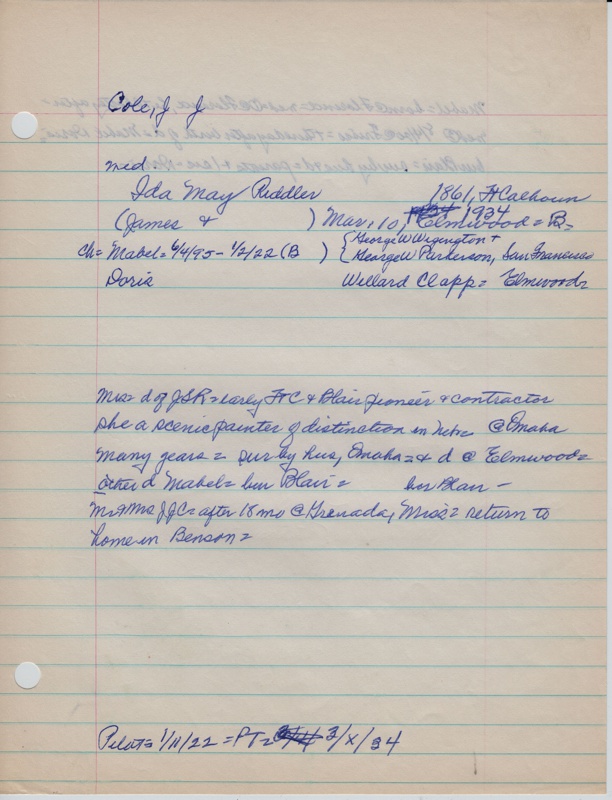 Cole, J J
mrd
Ida May Riddler 1861, Ft Calhoun
(James & ) Mar, 10, 1934, Elmwood = B =
ch = Mabel = 6/4/95 - 1/2/22 (B ) { George W Wigington +
George W Parkerson, San Francisco
Doris Willard Clapp = Elmwood =
Mrs = d of JSR = early Ft C & Blair pioneer & contractor
she a scenic painter of distinction in Nebr @ Omaha
many years = sur by hus, Omaha = & d @ Elmwood =
other d Mabel = bur Blair = bur Blair -
Mr & Mrs JJC = after 18 mo @ Grenada, Miss = return to
home in Benson =
Pilot = 1/11/22 = PT = 3/X/34